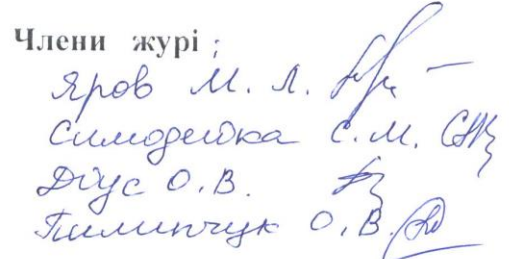 Члени журі :
Яров М. Л.
Симодейка С. М.
Доус О. В.
Пилипчук О. В.